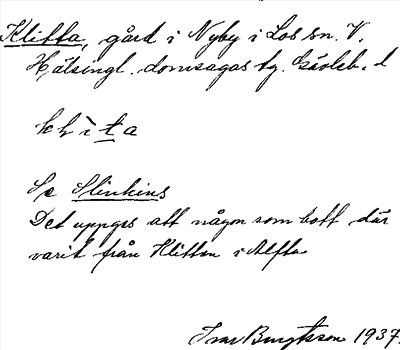 Klitta, gård i Nyby i Los sn. V.
Hälsingl. domsagas tg. Gävleb. l
Se Slinkins
Det uppges att någon som bott där
varit från Klitten i Alfta
Ivar Bengtsson 1937.